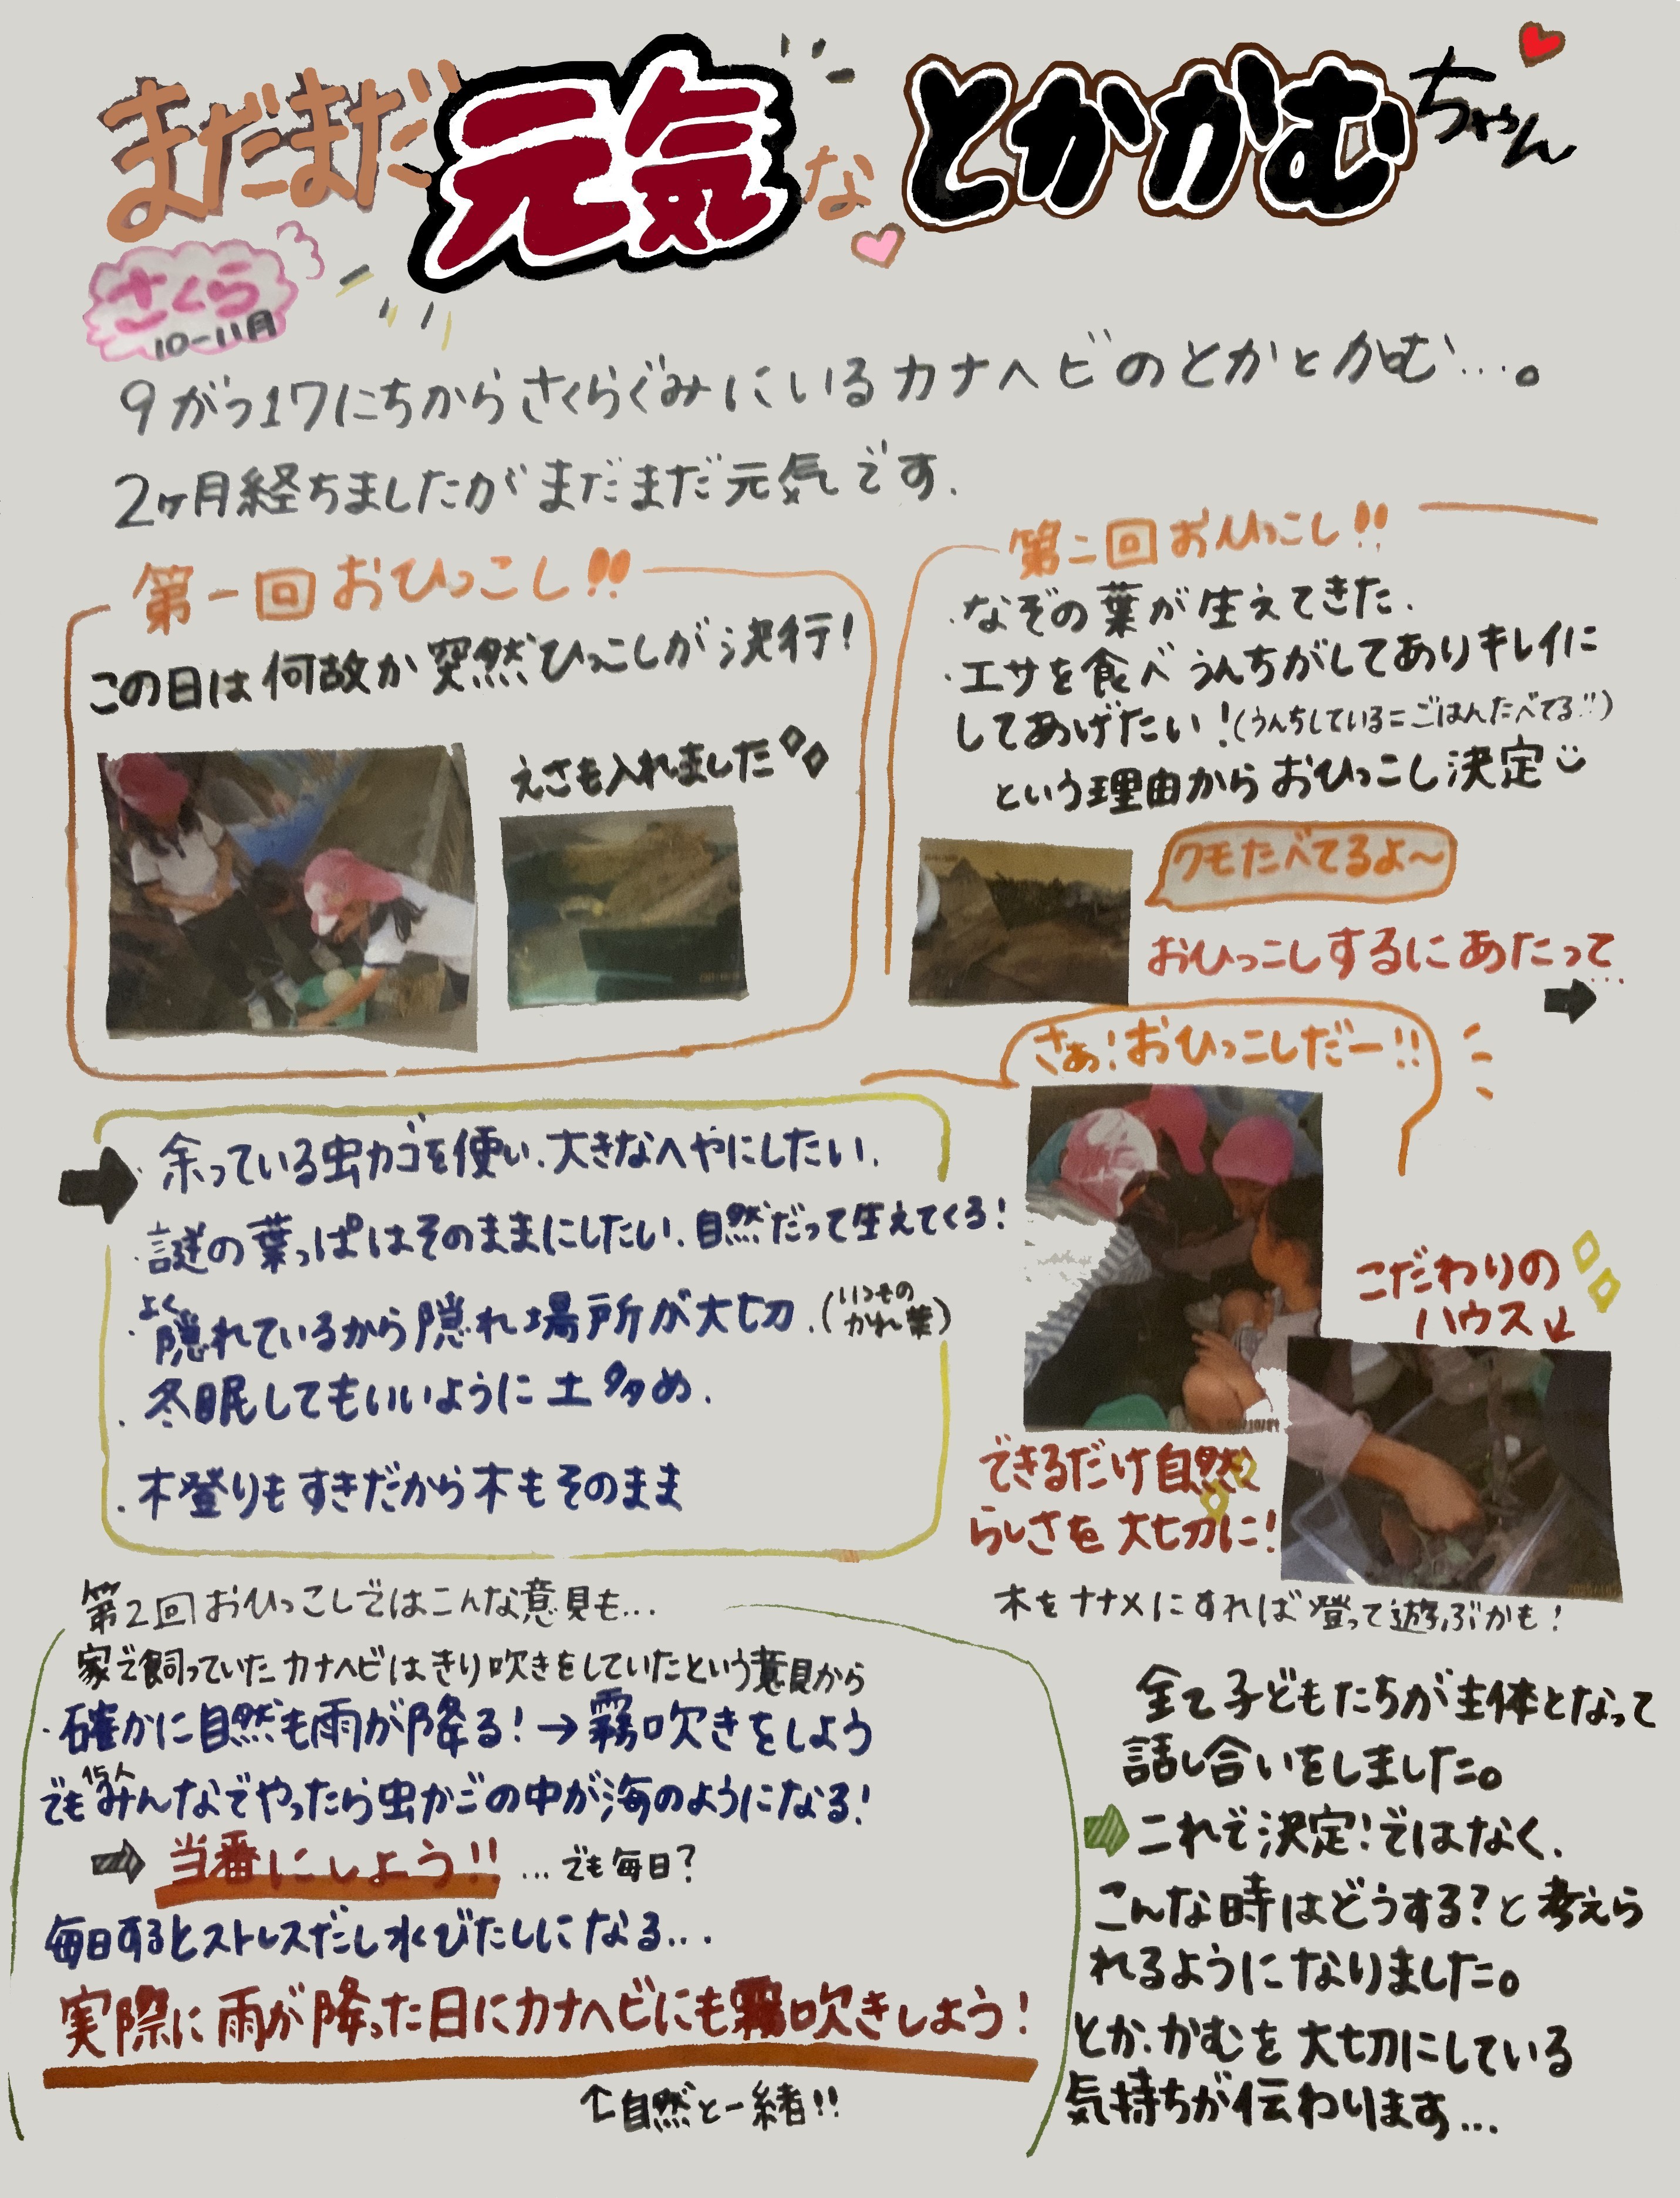 まだまだ元気なとかかむちゃん
さくら
10-11月
9がつ17にちからさくらぐみにいるカナヘビのとかとかむ…。
2ヶ月経ちましたがまだまだ元気です.
第一回おひっこし!!
この日は何故か突然ひっこしが決行!
えさも入れました
第二回おひっこし!!
・なぞの葉が生えてきた.
・エサを食べうんちがしてありキレイに
してあげたい!(うんちしている=ごはんたべてる!!)
という理由からおひっこし決定
クモたべてるよ〜
おひっこしするにあたって…
さぁ!おひっこしだー!!
・余っている虫カゴを使い、大きなへやにしたい.
・謎の葉っぱはそのままにしたい.自然だって生えてくる!
・よく隠れているから隠れ場所が大切.(いつものかれ葉)
・冬眠してもいいように土多め.
・木登りもすきだから木もそのまま
こだわりの
ハウス↓
できるだけ自然
らしさを大切に!
木をナナメにすれば登って遊ぶかも!
第2回おひっこしではこんな意見も…
家で飼っていたカナヘビはきり吹きをしていたという意見から
・確かに自然も雨が降る!→霧吹きをしよう
でも15人みんなでやったら虫かごの中が海のようになる!
➡当番にしよう!! …でも毎日?
毎日するとストレスだし水びたしになる…
実際に雨が降った日にカナヘビにも霧吹きしよう!
↑自然と一緒!!
全て子どもたちが主体となって
話し合いをしました。
➡これで決定!ではなく、
こんな時はどうする?と考えら
れるようになりました。
とか、かむを大切にしている
気持ちが伝わります…